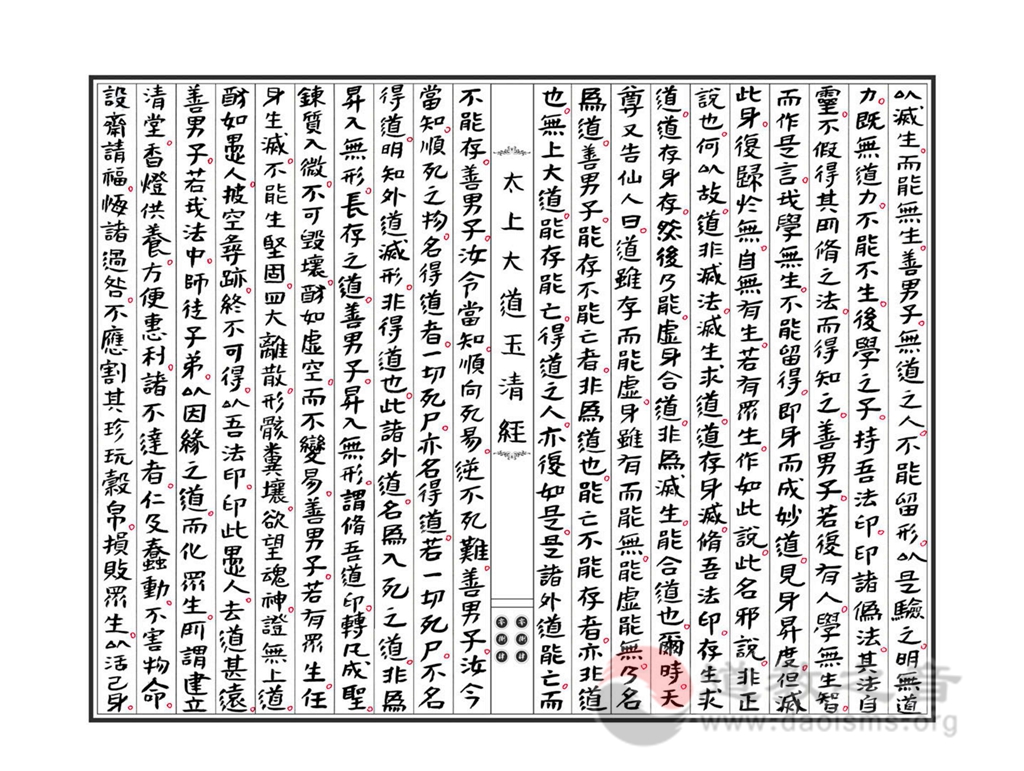 㠯滅生。而能無生。善男子。無道之人。不能留形。㠯是驗之。明無道
力。旣無道力。不能不生。後學之子。持吾法印。印諸偽法。其法自
靈。不假得其所脩之法。而得知之。善男子。若復有人。學無生智。
而作是言。我學無生。不能留得。即身而成妙道。見身昇度。但滅
此身。復歸於無。自無有生。若有眾生。作如此說。此名邪說。非正
說也。何㠯故。道非滅法。滅生求道。道存身滅。脩吾法印。存生求
道。道存身存。然後乃能。虛身合道。非為滅生。能合道也。爾時天
尊又告仙人曰。道雖存而能虛。身雖有而能無。能虛能無。乃名
為道。善男子。能存不能亡者。非為道也。能亡不能存者。亦非道
也。無上大道。能存能亡。得道之人。亦復如是。是諸外道。能亡而
太上大道玉清經
不能存。善男子。汝今當知。順向死易。逆不死難。善男子。汝今
當知。順死之物。名得道者。一切死尸。亦名得道。若一切死尸。不名
得道。明知外道滅形。非得道也。此諸外道。名為入死之道。非為
昇入無形。長存之道。善男子。昇入無形。謂脩吾道印。轉凡成聖。
鍊質入微。不可毀壞。酧如虛空。而不變易。善男子。若有眾生。任
身生滅。不能生堅固。四大離散。形骸糞壤。欲望魂神。證無上道。
酧如愚人。披空尋跡。終不可得。㠯吾法印。印此愚人。去道甚遠。
善男子。若我法中。師徒子弟。㠯因緣之道。而化眾生。所謂建立
清堂。香燈供養。方便惠利。諸不達者。仁及蠢動。不害物命。
設齋請福。悔諸過咎。不應割其珍玩縠帛。損敗眾生。㠯活己身。
道教之音
www.daoisms.org